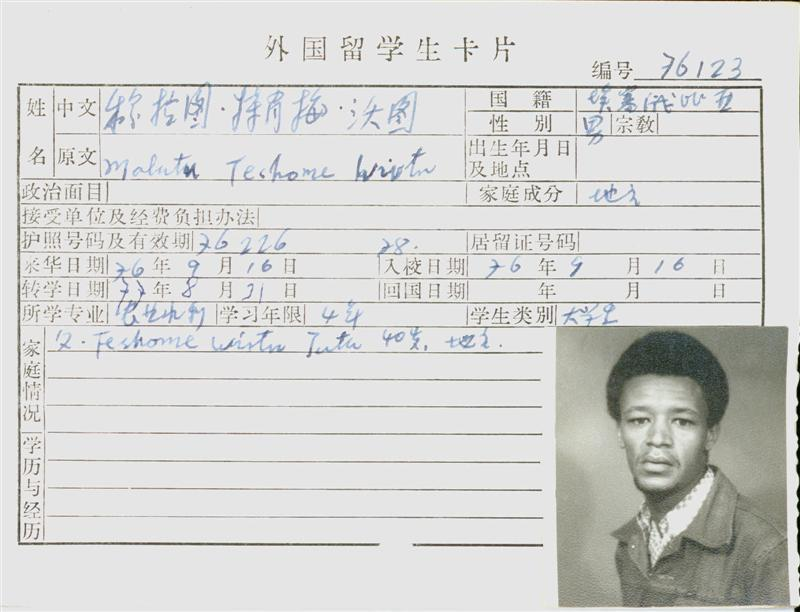 外国留学生卡片
编号 76123
姓名 中文 穆拉图·特肖梅·沃图 国籍 埃塞俄比亚
性别 男 宗教
原文 Malatu Teshome Wirtu 出生年月日及地点
政治面目 家庭成分 地主
接受单位及经费负担办法
护照号码及有效期 76226 78. 居留证号码
来华日期 76年9月16日 入校日期 76年9月16日
转学日期 77年8月31日 回国日期 年 月 日
所学专业 学习年限 4年 学生类别 大学生
家庭情况 父·Teshome Wirtu Tutu 40岁,地主.
学历与经历